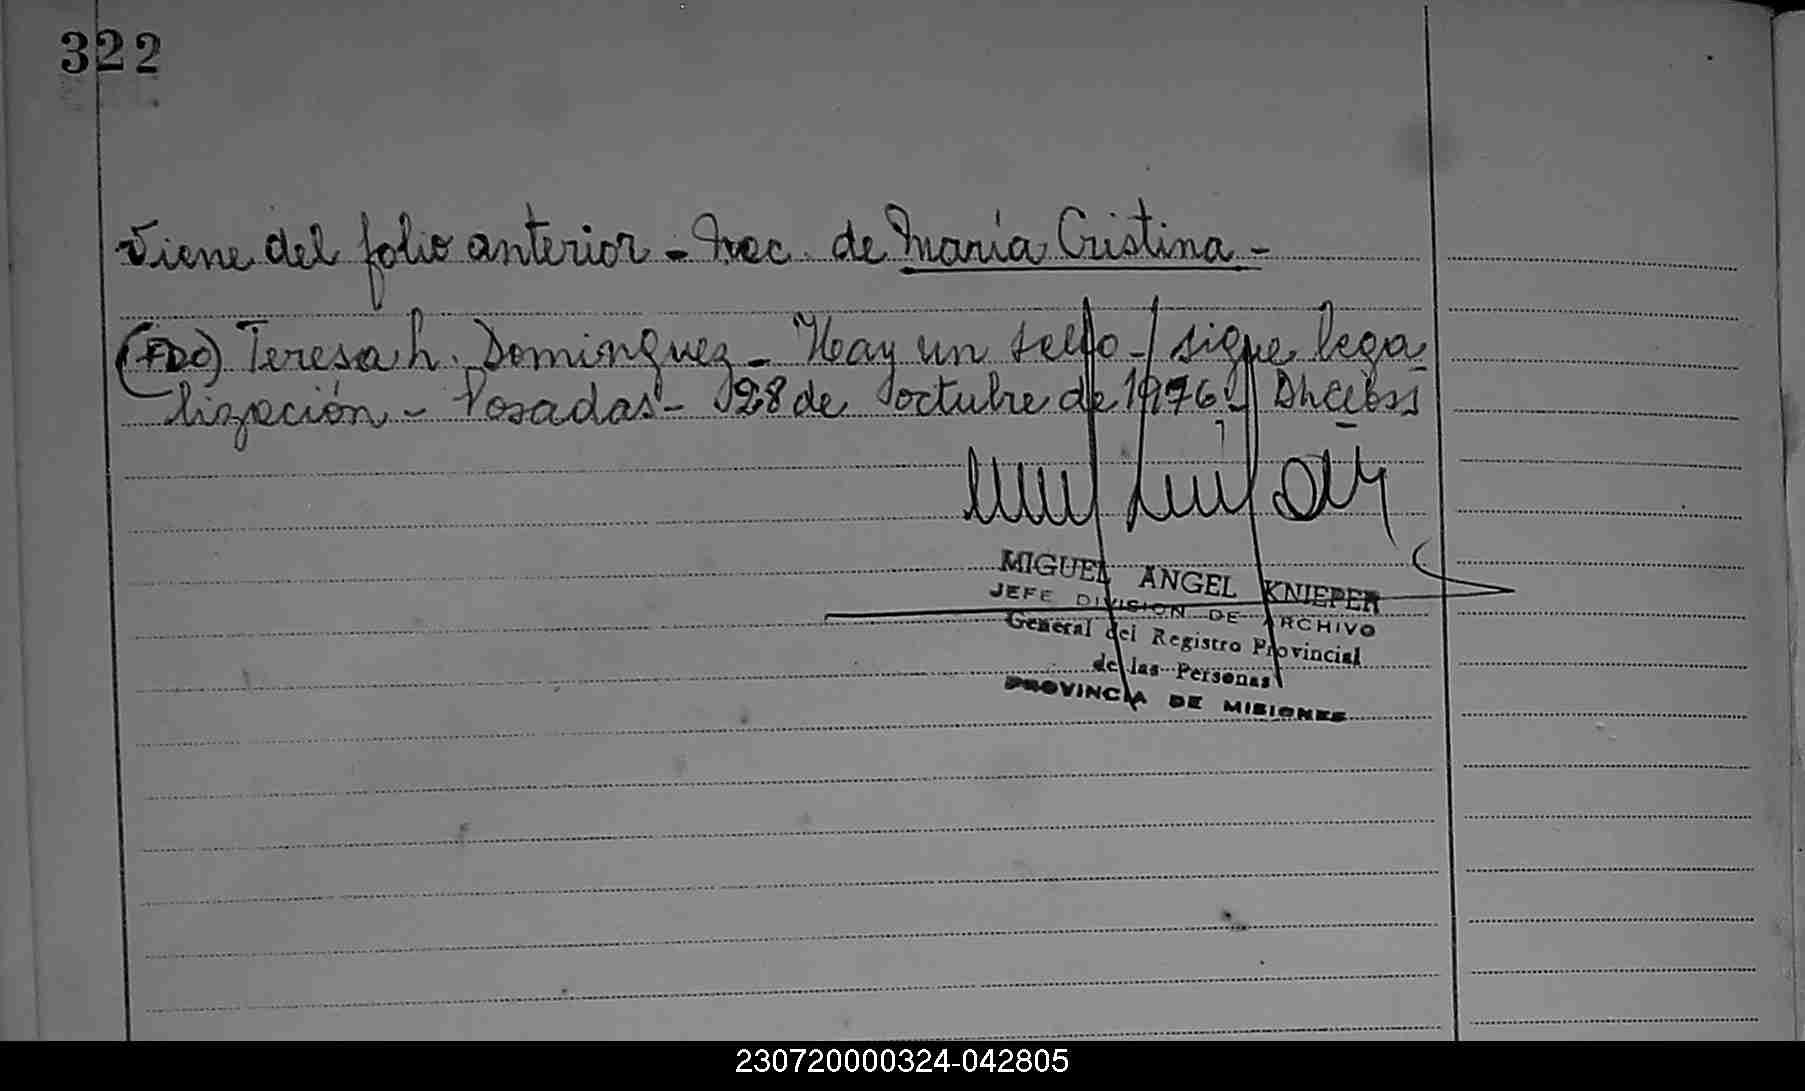 322
Viene del folio anterior - Nac. de María Cristina -
(FDO) Teresa h. Dominguez - Hay un sello - sigue lega
lización - Posadas - 28 de octubre de 1976 -
MIGUEL ANGEL KNIEPER
JEFE DIVISION DE ARCHIVO
General del Registro Provincial
de las Personas
PROVINCIA DE MISIONES
230720000324-042805